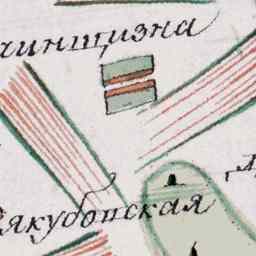 чинщизна
якубовская